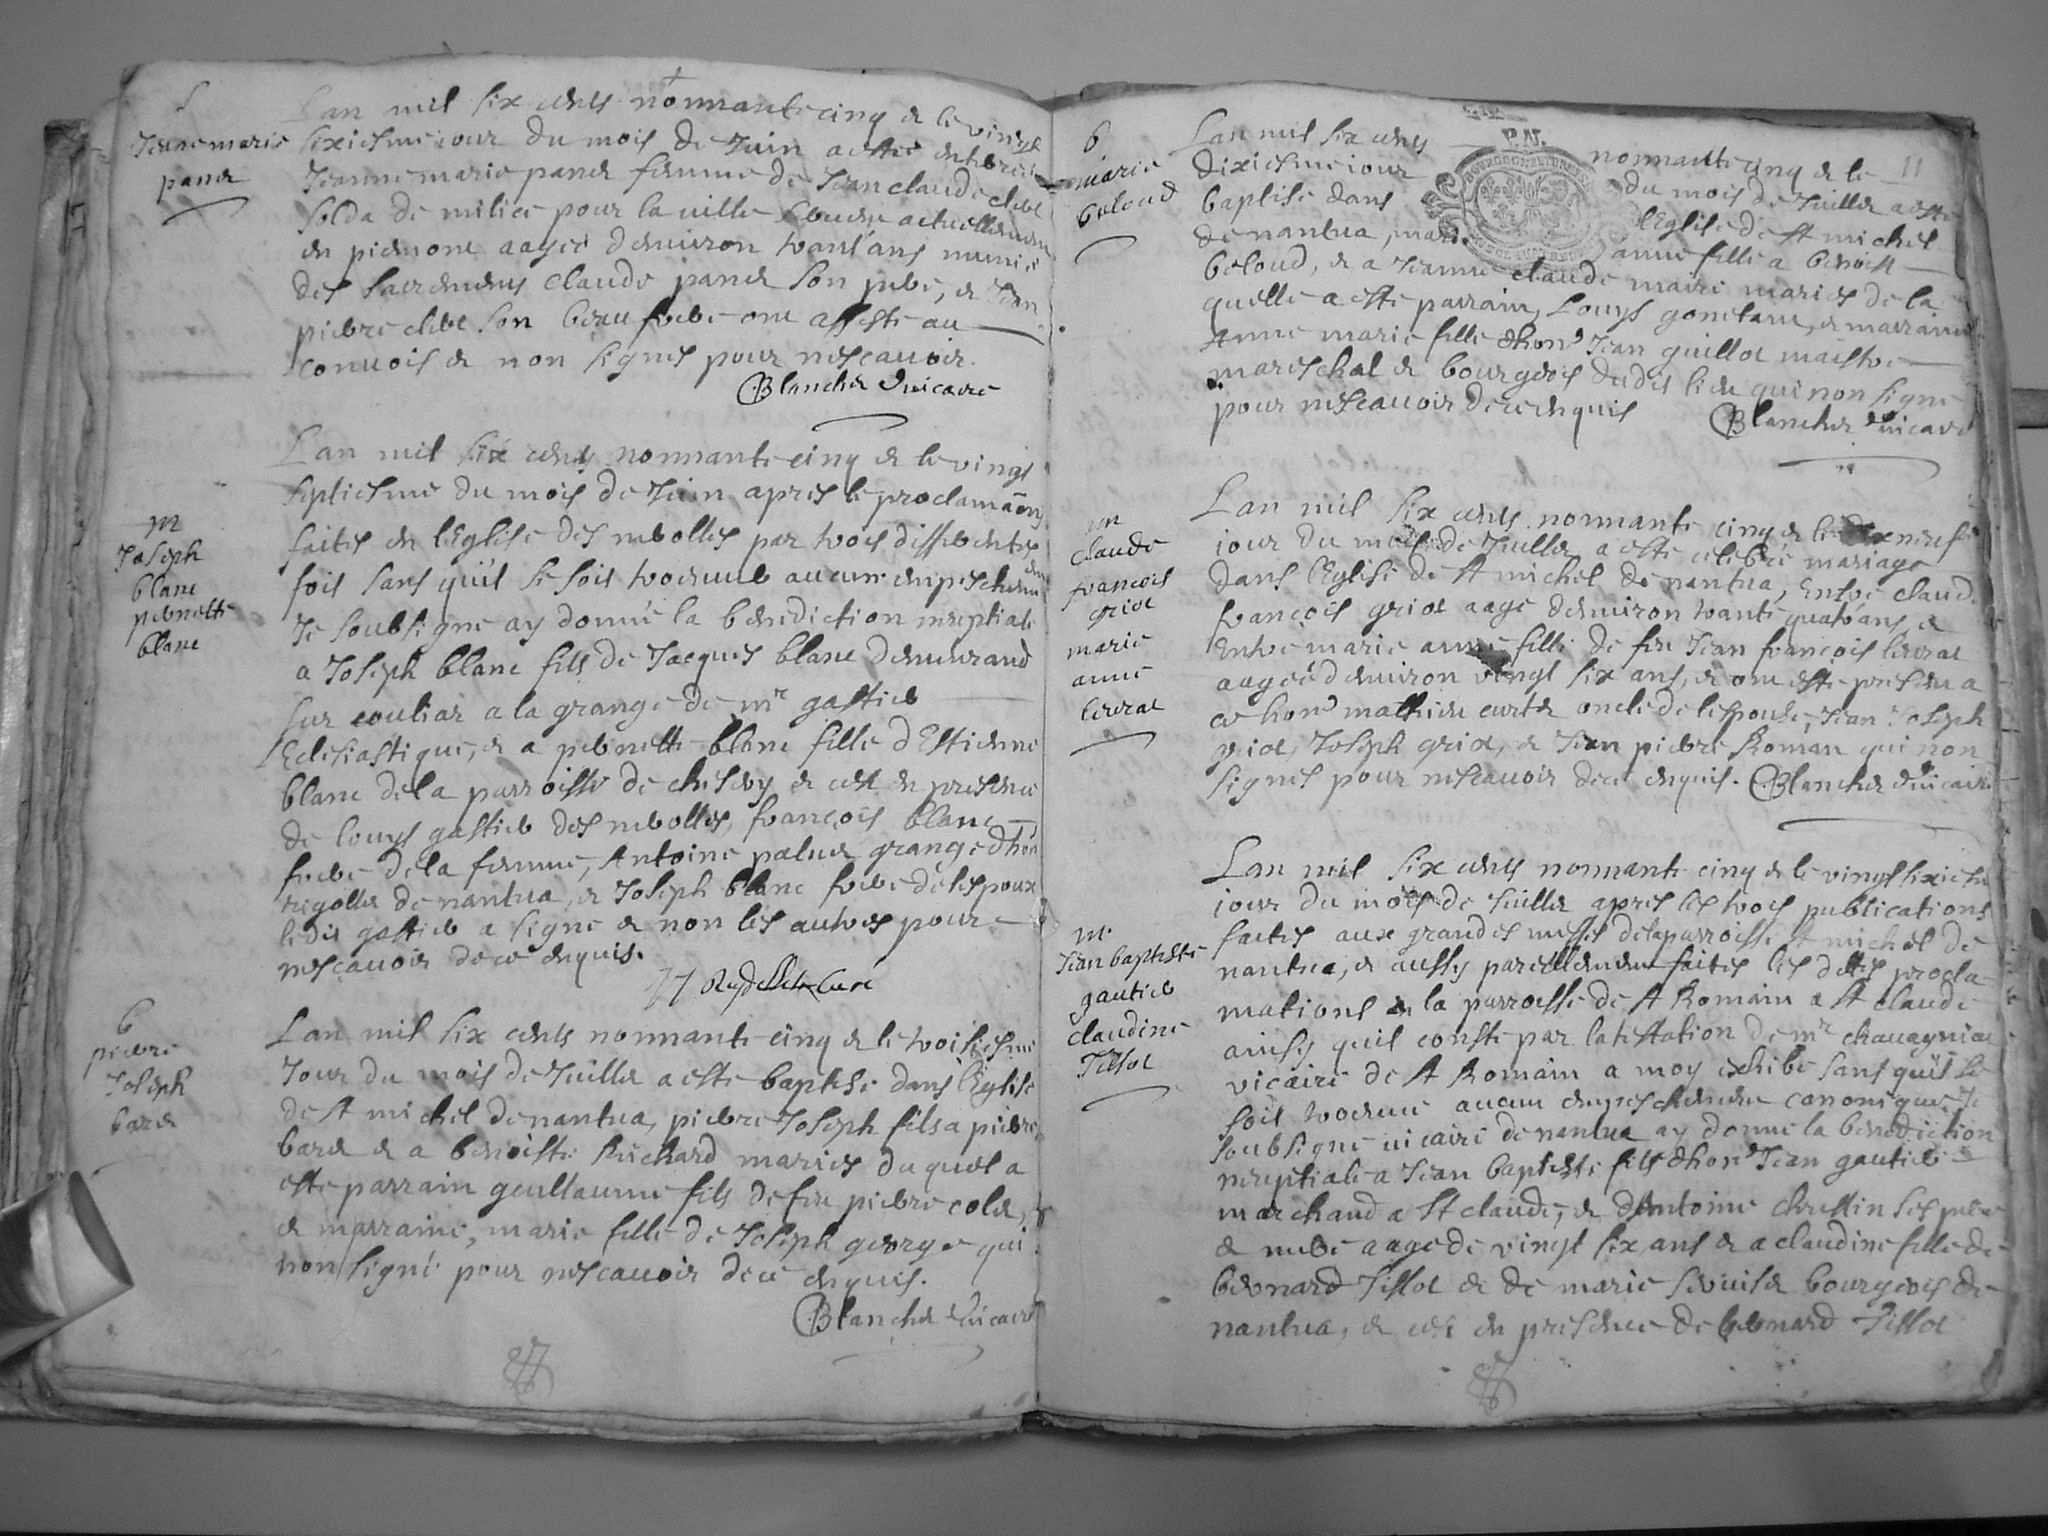 S
Jeane marie
panet
Lan mil six cents nonnante cinq et le vingt
sixiesme iour du mois de Juin a estée enterrée
Jeanne marie panet femme de Jean claude clert
solda de milice pour la uille seruent actuellement
en piemont aagée denuiron trant'ans munie
des sacrements claude panet son pere, et Jean
pierre clert son beau frere ont assisté au
conuois et non signes pour nescauoir.
Blanchet vicaire
m
Joseph
blanc
pernette
blanc
Lan mil six cents nonnante cinq et le vingt
septiesme du mois de Juin apres le proclamaõns
faites en lEglise des nerolles par trois differentes
fois sans quil se soit trouuub aucun empeschement
Je soubsigne ay donné la benediction nuptiale
a Joseph blanc fils de Jacques blanc demeurand
sur couliar a la grange de mr gastier
Eclesiastique, et a pernette blanc fille dEstienne
blanc de la parroisse de chesery et cest en presence
de louys gastier des nerolles, françois blanc
frere de la femme, Antoine paluet grange dhon
regollet de nantua, et Joseph blanc frere de lespoux
ledit gastier a signe et non les autres pour
nescauoir de ce enquis.
curé
b
pierre
Joseph
baret
Lan mil six cents nonnante cinq et le troisiesme
Jour du mois de Juillet a este baptise dans lEglise
de st michel de nantua, pierre Joseph fils a pierre
baret et a benoiste Richard maries duquel a
este parrain geullaume fils de feu pierre colet,
et marraine, marie fille de Joseph george qui
non signé pour nescauoir de ce enquis.
Blanchet vicaire
11
b
marie
beloud
Lan mil six cents nonnante cinq et le
dixiesme iour du mois de Juillet a este
baptise dans lEglise de st michel
de nantua, mari anne fille a benoist
beloud, et a Jeanne claude maire maries de la
quelle a este parrain, Louys gonetam, et marraine
Anne marie fille dhonr Jean guillot maistre
mareschal et bourgeois dudit lieu qui non signe
pour nescauoir de ce enquis
Blanchet vicaire
m
claude
francois
griot
marie
anne
Lan mil six cents nonnante cinq et le dixneuf
iour du mois de Juillet a este celebré mariage
dans lEglise de st michel de nantua, Entre claude
françois griot aage denuiron trante quatr'ans, et
Entre marie anne fille de feu Jean françois
aagée denuiron vingt six ans, et ont este presents a
ce honr mathieu curtet oncle de lespouse, Jean Joseph
griot, Joseph griot, et Jean pierre Roman qui non
signes pour nescauoir de ce enquis. Blanchet vicaire
m
Jean baptiste
gautier
claudine
Tissot
Lan mil six cents nonnante cinq et le vingt sixiesme
iour du mois de Juillet apres les trois publications
faites aux grandes messes de la parroisse st michel de
nantua, et aussy pareillement faites les dites procla-
mations en la parroesse de st Romain a st claude
ainsy quil conste par latestation de mr chauagniat
vicaire de st Romain a moy exhibé sans quil se
soit trouue aucun empeschement canonique Je
soubsigne uicaire de nantua ay donné la benediction
nuptiale a Jean baptiste fils dhonr Jean gautier
marchand a st claude, et dAntoine chrestin ses pere
et mere aage de vingt six ans et a claudine fille de
bernard Tissot et de marie bourgeois de
nantua, et cest en presence de bernard Tissot